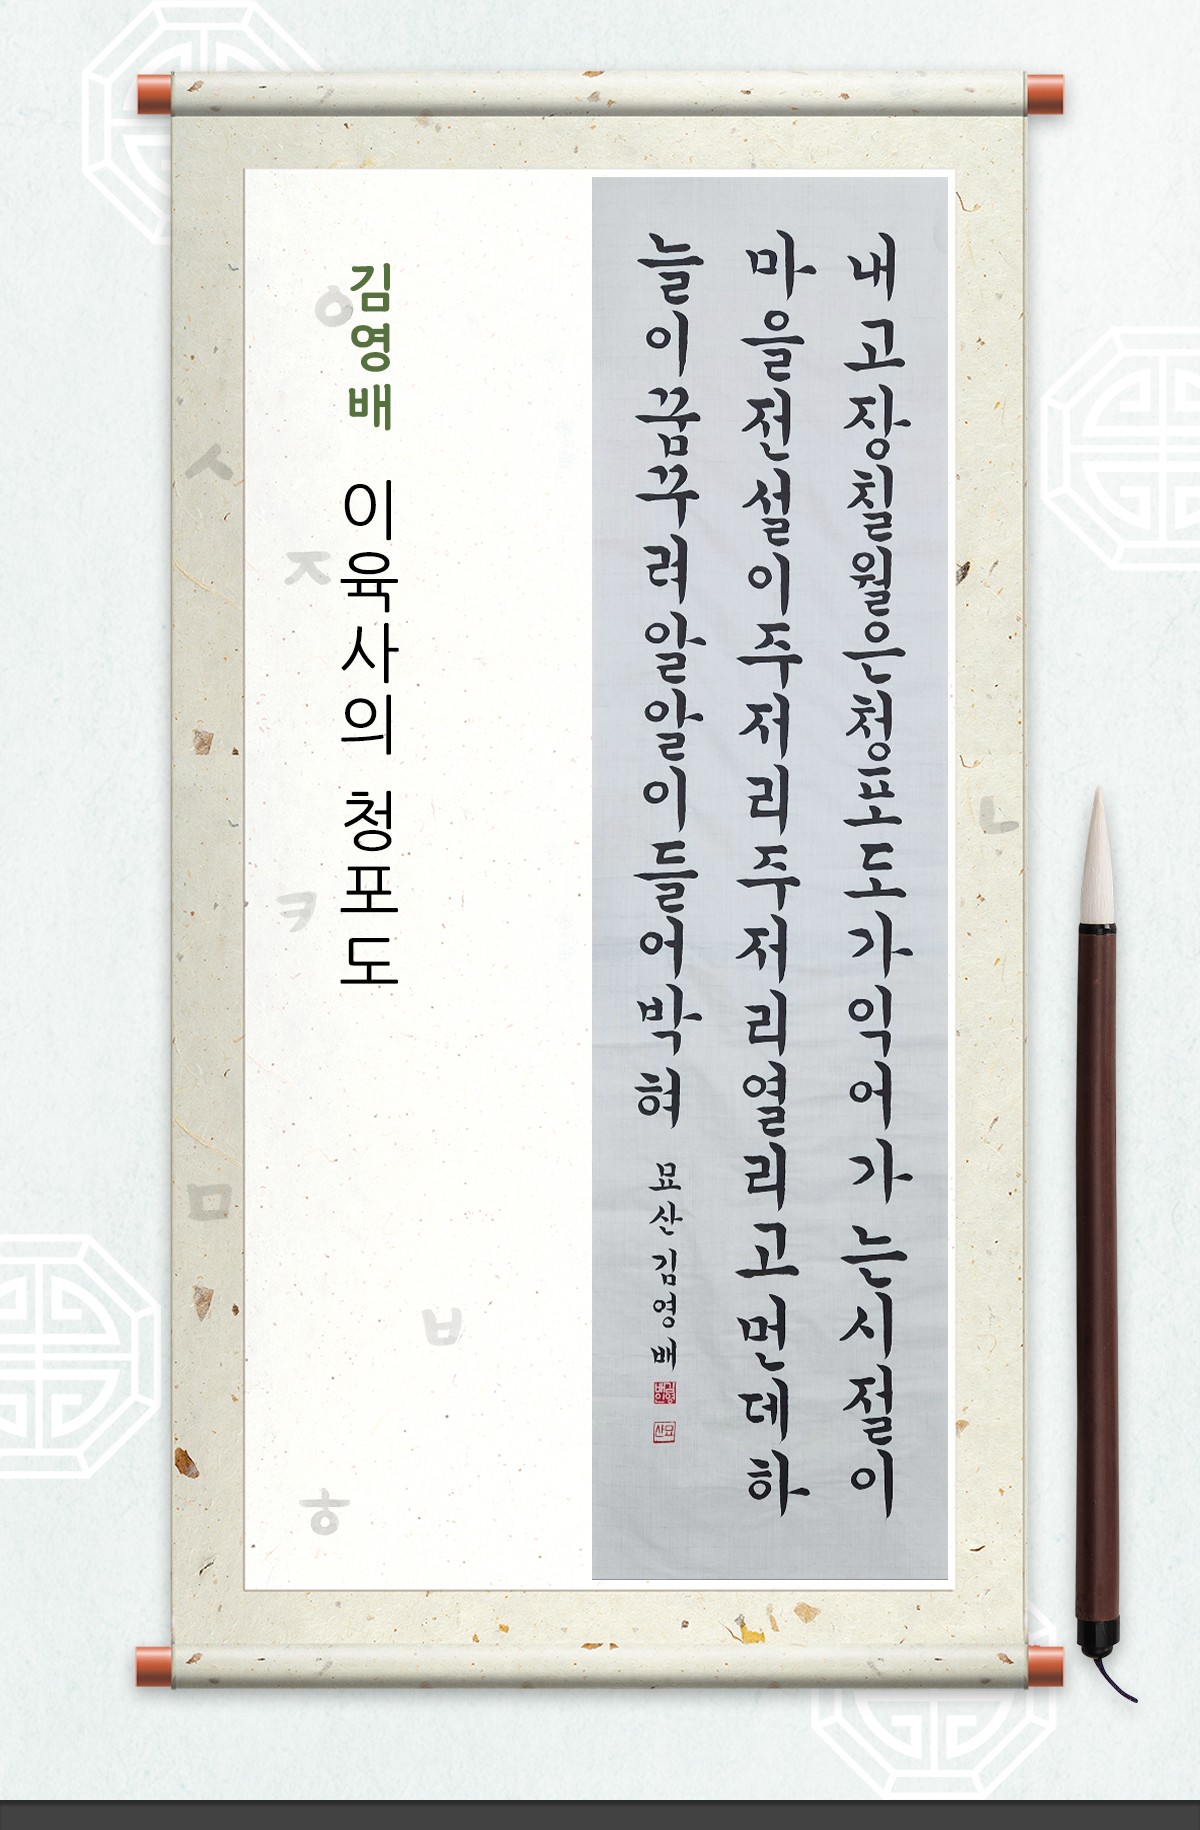 내고장칠월은청포도가익어가는시절이
마을전설이주저리주저리열리고먼데하
늘이꿈꾸려알알이들어박혀 묘산김영배
김영배인
묘산
김영배 이육사의 청포도
ㅇ
ㅅ
ㅈ
ㅋ
ㄴ
ㅁ
ㅂ
ㅎ